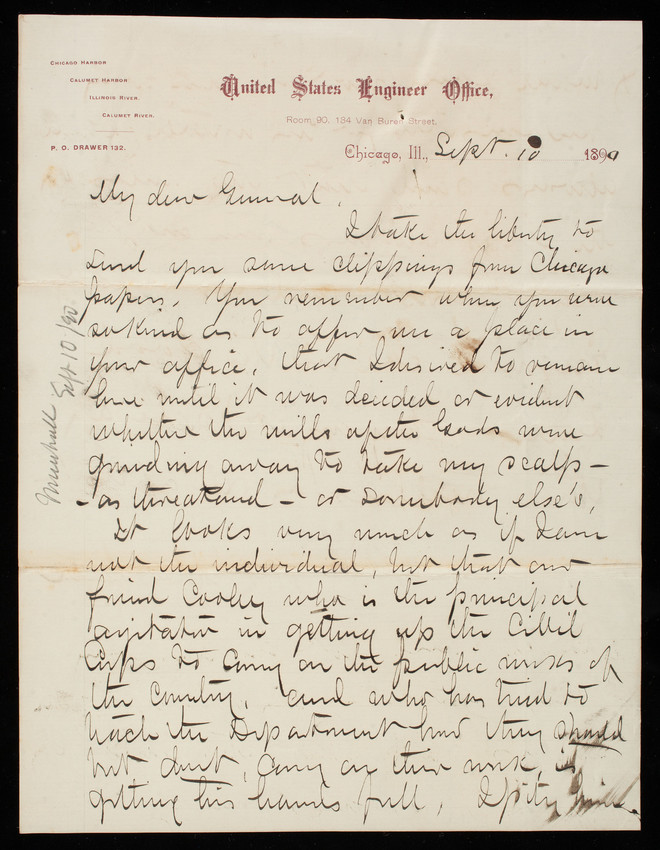 CHICAGO HARBOR
CALUMET HARBOR
ILLINOIS RIVER.
CALUMET RIVER.
P. O. DRAWER 132.
United States Engineer Office,
Room 90, 184 Van Buren Street,
Chicago, Ill., Sept. 10 1890
My dear General,
I take the liberty to
send you some clippings from Chicago
papers. You remember when you were
so kind as to offer me a place in
your office, that I desired to remain
here until it was decided or evident
whether the mills of the Gods were
grinding away to take my scalp -
- as threatened - or somebody else's,
It looks very much as if I am
not the individual, but that our
friend Cooley who is the principal
agitator in getting up the Civil
Corps to carry on the public works of
the country, and who has tried to
teach the Department how they should
but don't, carry on their work, is
getting his hands full, I pity him.
Marshall Sept 10/90